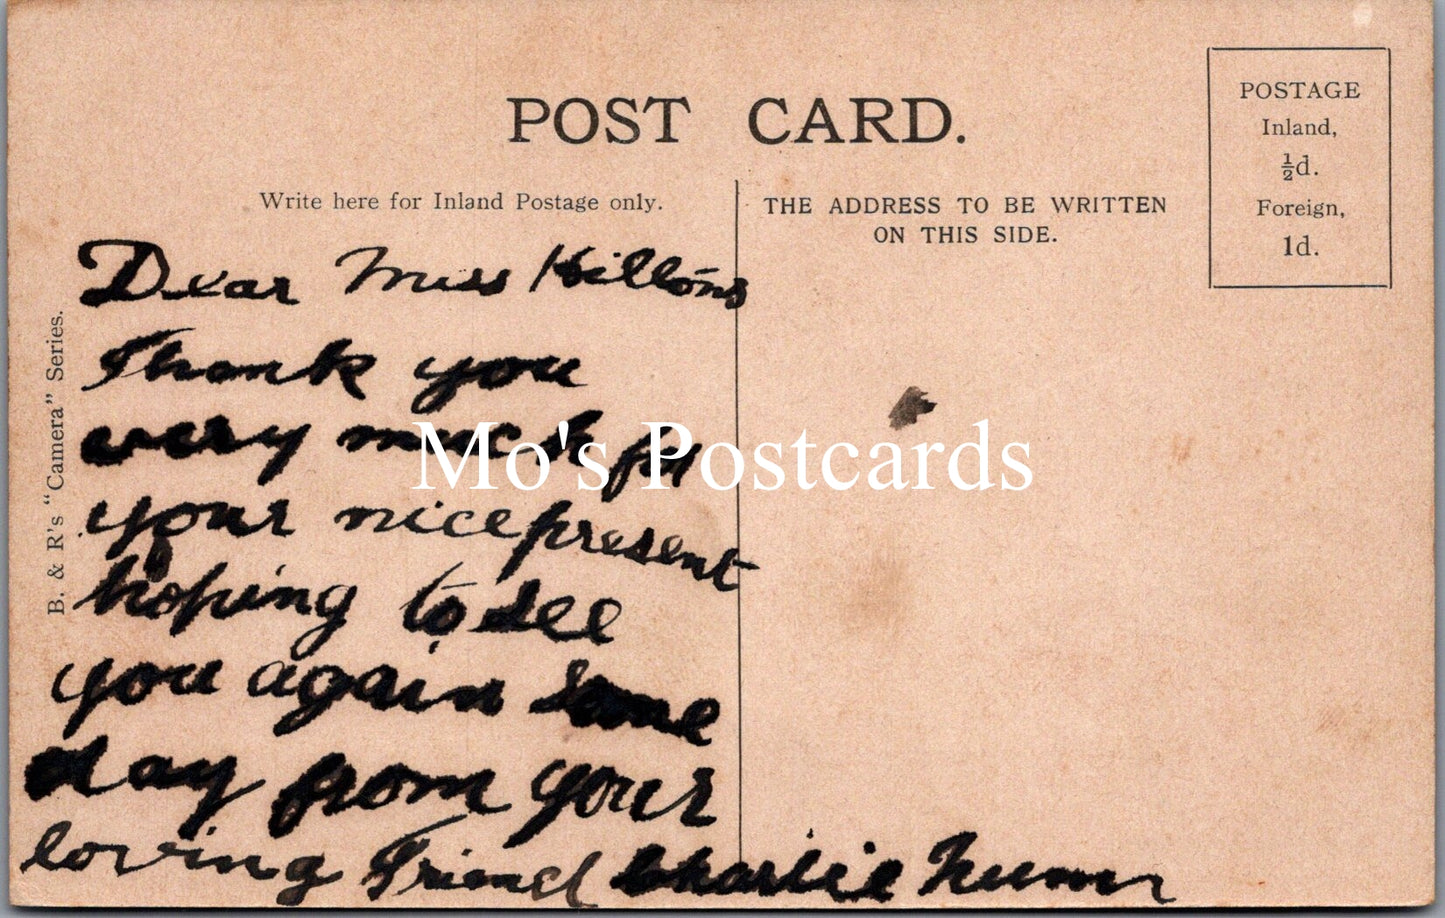 POST CARD.
POSTAGE
Inland,
½d.
Foreign,
1d.
Write here for Inland Postage only.
THE ADDRESS TO BE WRITTEN
ON THIS SIDE.
B. & R's "Camera" Series.
Dear Miss
Thank you
very much for
your nice present
hoping to see
you again some
day from your
loving Friend Charlie
Mo's Postcards